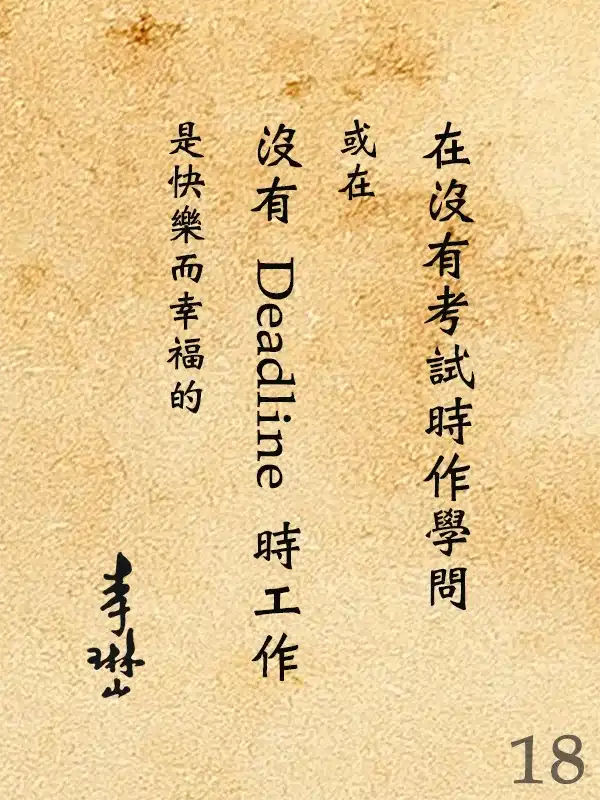 在沒有考試時作學問
或在
沒有 Deadline 時工作
是快樂而幸福的
李琳山
18